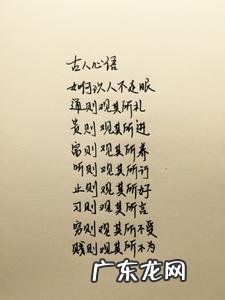 古人心语
如何识人不走眼
通则观其所礼
贵则观其所进
富则观其所养
听则观其所行
止则观其所好
习则观其所言
穷则观其所不受
贱则观其所不为
广东龙网